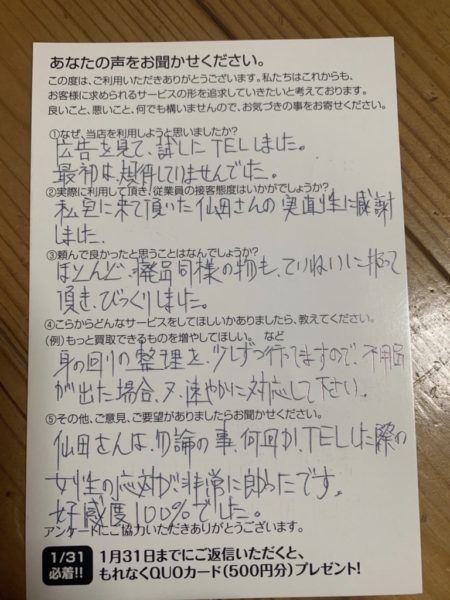 あなたの声をお聞かせください。
この度は、ご利用いただきありがとうございます。私たちはこれからも、
お客様に求められるサービスの形を追求していきたいと考えております。
良いこと、悪いこと、何でも構いませんので、お気づきの事をお寄せください。
①なぜ、当店を利用しようと思いましたか?
広告を見て、試しにTELしました。
最初は、期待していませんでした。
②実際に利用して頂き、従業員の接客態度はいかがでしょうか?
私宅に来て頂いた仙田さんの実直性に感謝
しました.
③頼んで良かったと思うことはなんでしょうか?
ほとんど、廃品同様の物も、ていねいに扱って
頂き、びっくりしました。
④こらからどんなサービスをしてほしいかありましたら、教えてください。
(例)もっと買取できるものを増やしてほしい。 など
身の回りの整理を、少しずつ行てますので、不用品
が出た場合、又、速やかに対応して下さい。
⑤その他、ご意見、ご要望がありましたらお聞かせください。
仙田さんは、勿論の事、何回か、TELした際の
女性の応対が、非常に良かったです。
好感度100%でした。
アンケートにご協力いただきありがとうございます。
1/31
必着!!
1月31日までにご返信いただくと、
もれなくQUOカード(500円分)プレゼント!